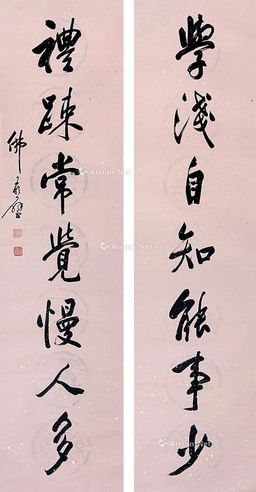 學淺自知能事少
禮疎常覺慢人多
佛
Artron.Net
Artron.Net